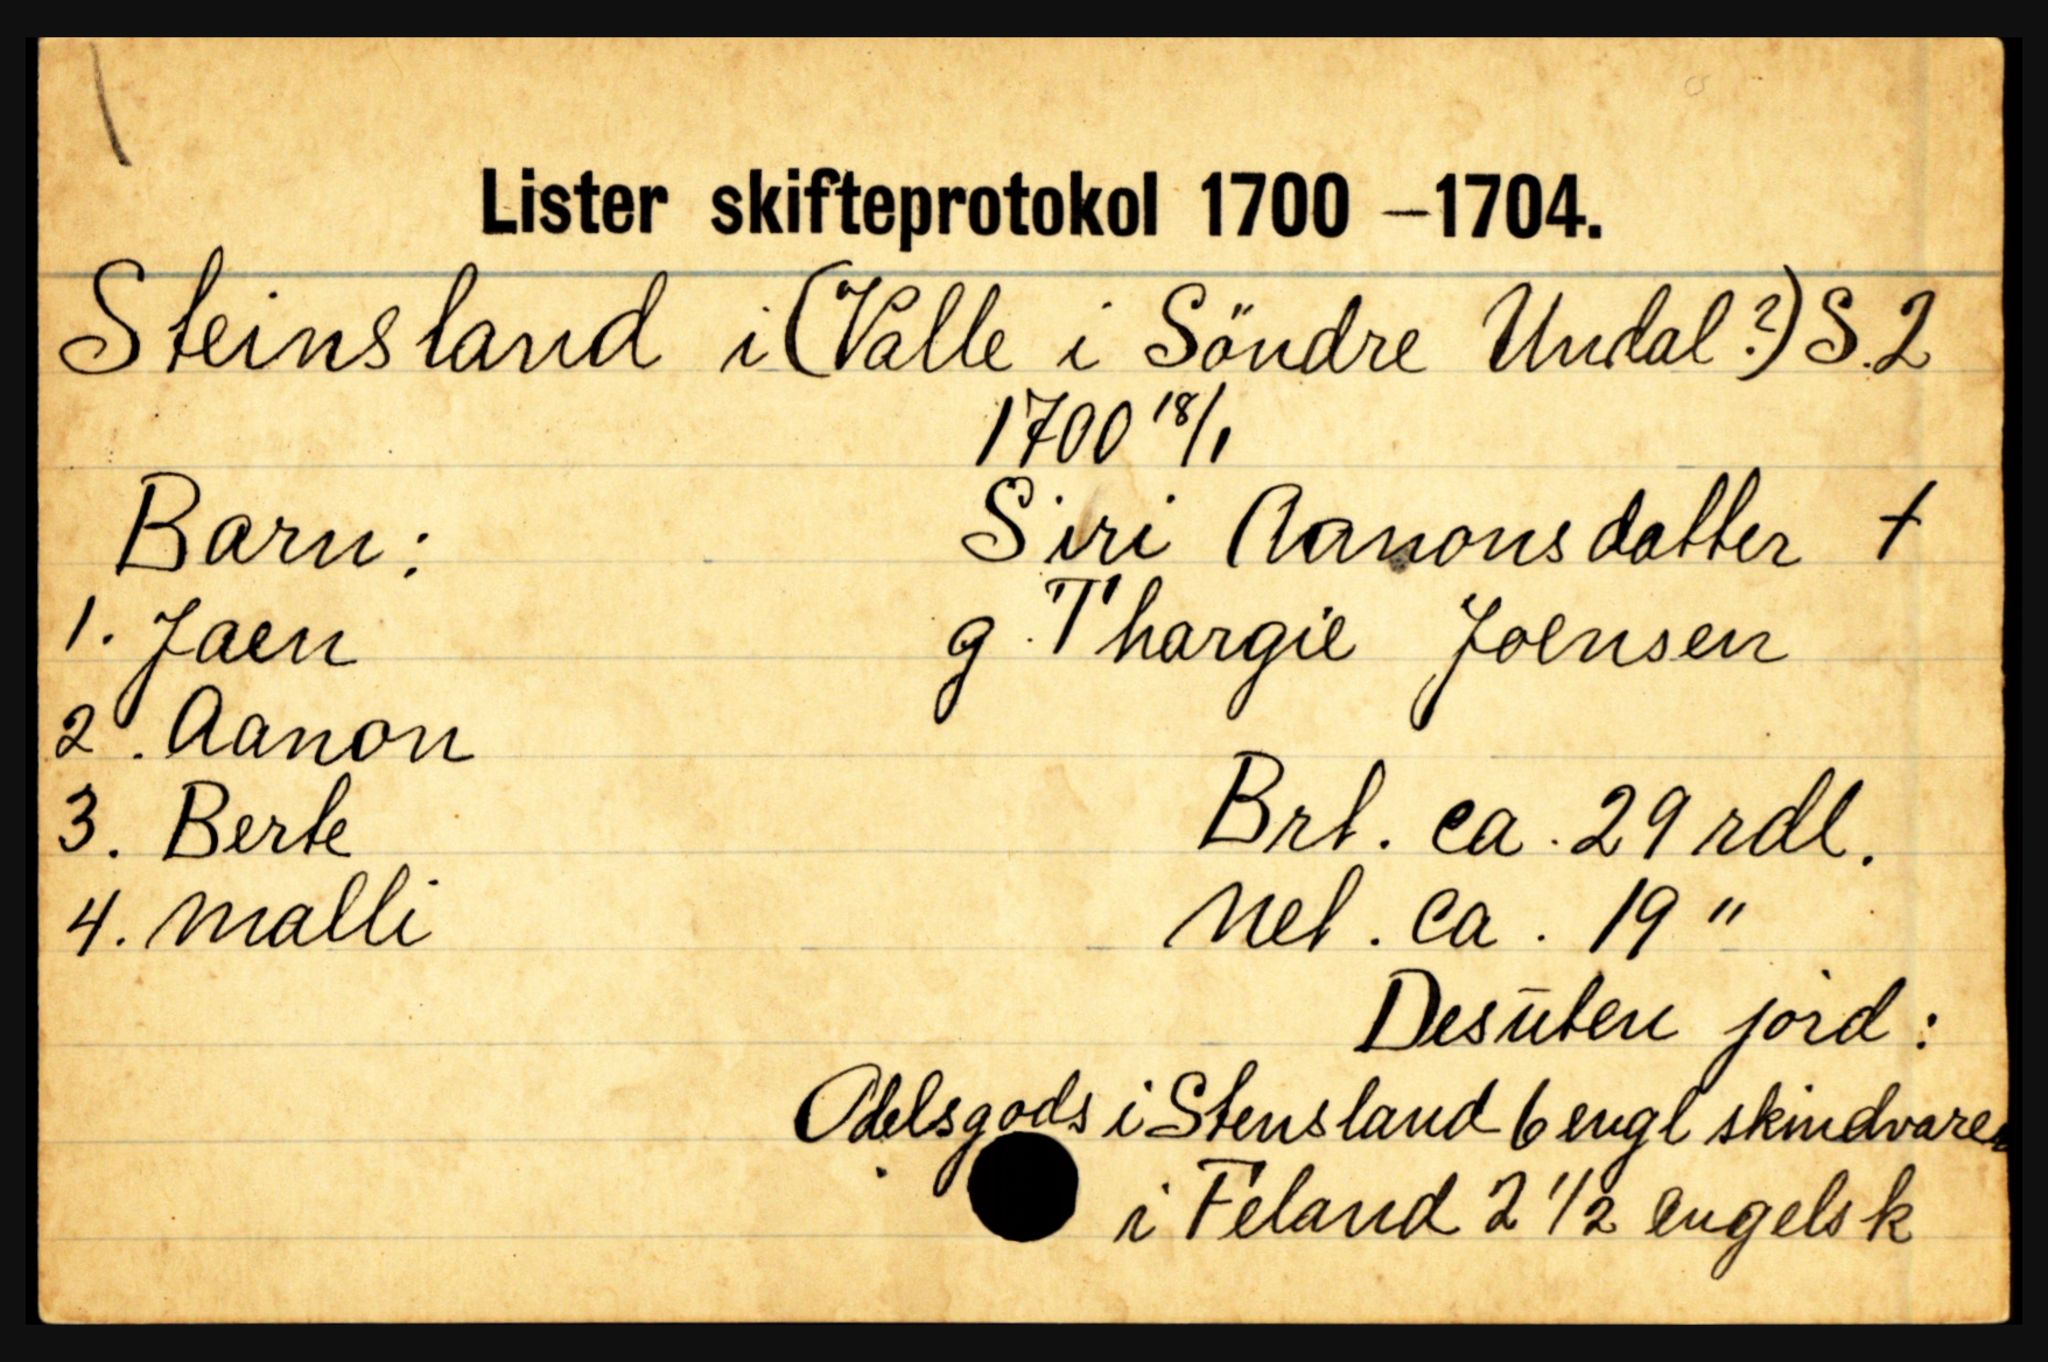 Lister skifteprotokol 1700 –1704.
Steinsland i (Valle i Söndre Undal?) S. 2
1700 18/1
Barn: Siri Aanonsdatter †
1. Jaen g. Thargie Joensen
2. Aanon
3. Berte Brt. ca. 29 rdl.
4. Malli Net. ca. 19 "
Desūten jord:
Odelsgods i Stensland 6 engl skindvarer
i Feland 2 1/2 engelsk